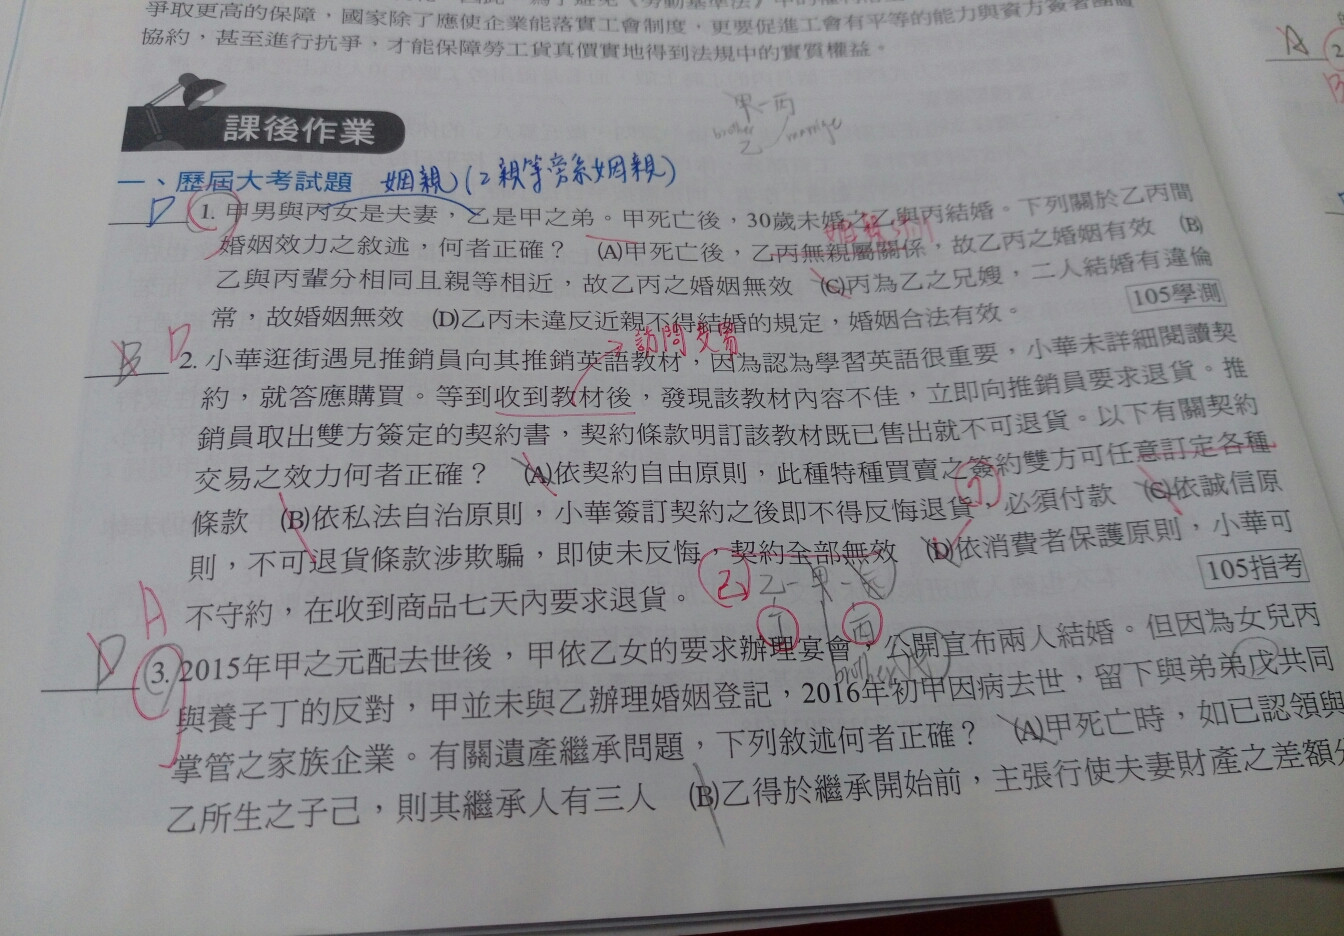 爭取更高的保障，國家除了應使企業能落實工會制度，更要促進工會有平等的能力與資方簽署團體
協約，甚至進行抗爭，才能保障勞工貨真價實地得到法規中的實質權益。
甲-丙
brother
乙
課後作業
一、歷屆大考試題 姻親(2親等旁系姻親)
D 1. 甲男與丙女是夫妻，乙是甲之弟。甲死亡後，30歲未婚之乙與丙結婚。下列關於乙丙間
婚姻效力之敘述，何者正確？ (A)甲死亡後，乙丙無親屬關係，故乙丙之婚姻有效 (B)
乙與丙輩分相同且親等相近，故乙丙之婚姻無效 (C)丙為乙之兄嫂，二人結婚有違倫
常，故婚姻無效 (D)乙丙未違反近親不得結婚的規定，婚姻合法有效。 105學測
→訪問交買
B D 2. 小華逛街遇見推銷員向其推銷英語教材，因為認為學習英語很重要，小華未詳細閱讀契
約，就答應購買。等到收到教材後，發現該教材內容不佳，立即向推銷員要求退貨。推
銷員取出雙方簽定的契約書，契約條款明訂該教材既已售出就不可退貨。以下有關契約
交易之效力何者正確？ (A)依契約自由原則，此種特種買賣之簽約雙方可任意訂定各種
條款 (B)依私法自治原則，小華簽訂契約之後即不得反悔退貨，必須付款 (C)依誠信原
則，不可退貨條款涉欺騙，即使未反悔，契約全部無效 (D)依消費者保護原則，小華可
不守約，在收到商品七天內要求退貨。 105指考
乙-甲-戊
丁 丙
brother
A
D 3. 2015年甲之元配去世後，甲依乙女的要求辦理宴會，公開宣布兩人結婚。但因為女兒丙
與養子丁的反對，甲並未與乙辦理婚姻登記，2016年初甲因病去世，留下與弟弟戊共同
掌管之家族企業。有關遺產繼承問題，下列敘述何者正確？ (A)甲死亡時，如已認領與
乙所生之子己，則其繼承人有三人 (B)乙得於繼承開始前，主張行使夫妻財產之差額
A 2
B